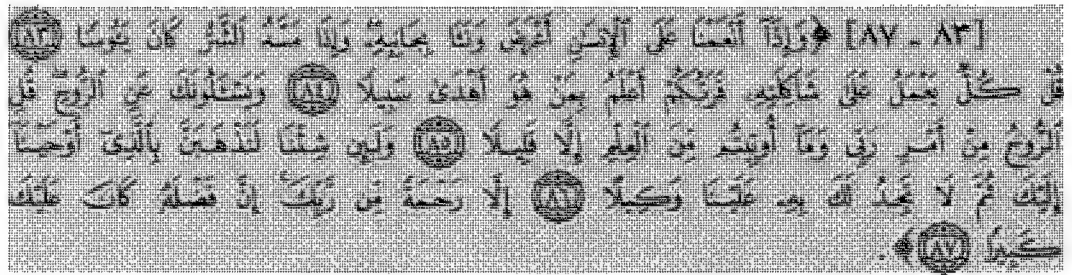 [٨٣ ـ ٨٧] ﴿وَإِذَآ أَنْعَمْنَا عَلَى ٱلْإِنسَٰنِ أَعْرَضَ وَنَـَٔا بِجَانِبِهِۦ وَإِذَا مَسَّهُ ٱلشَّرُّ كَانَ يَـُٔوسًا ٨٣
قُلْ كُلٌّ يَعْمَلُ عَلَىٰ شَاكِلَتِهِۦ فَرَبُّكُمْ أَعْلَمُ بِمَنْ هُوَ أَهْدَىٰ سَبِيلًا ٨٤ وَيَسْـَٔلُونَكَ عَنِ ٱلرُّوحِ قُلِ
ٱلرُّوحُ مِنْ أَمْرِ رَبِّى وَمَآ أُوتِيتُم مِّنَ ٱلْعِلْمِ إِلَّا قَلِيلًا ٨٥ وَلَئِن شِئْنَا لَنَذْهَبَنَّ بِٱلَّذِىٓ أَوْحَيْنَآ
إِلَيْكَ ثُمَّ لَا تَجِدُ لَكَ بِهِۦ عَلَيْنَا وَكِيلًا ٨٦ إِلَّا رَحْمَةً مِّن رَّبِّكَ إِنَّ فَضْلَهُۥ كَانَ عَلَيْكَ
كَبِيرًا ٨٧﴾.